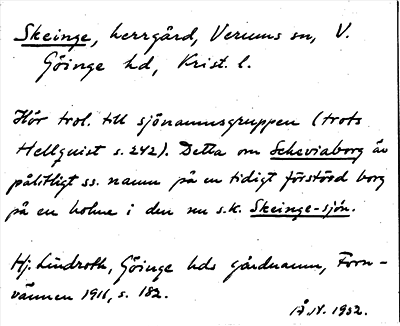 Skeinge, herrgård, Verums sn, V.
Göinge hd, Krist. l.
Hör trol. till sjönamnsgruppen (trots
Hellquist s. 242). Detta om Scheviaborg är
pålitligt ss. namn på en tidigt förstörd borg
på en holme i den nu s.k. Skeinge-sjön.
Hj. Lindroth, Göinge hds gårdnamn, Forn-
vännen 1916, s. 182.
Å.N. 1932.